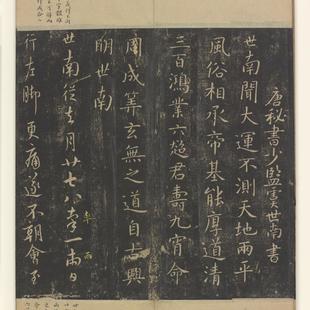 唐秘書少監虞世南書
世南聞大運不測天地兩平
風俗相承帝基能厚道清
三百鴻業六超君壽九霄命
周成筭玄無之道自古興
明世南
世南從去月廿七八率一兩日
行左脚更痛遂不朝會至